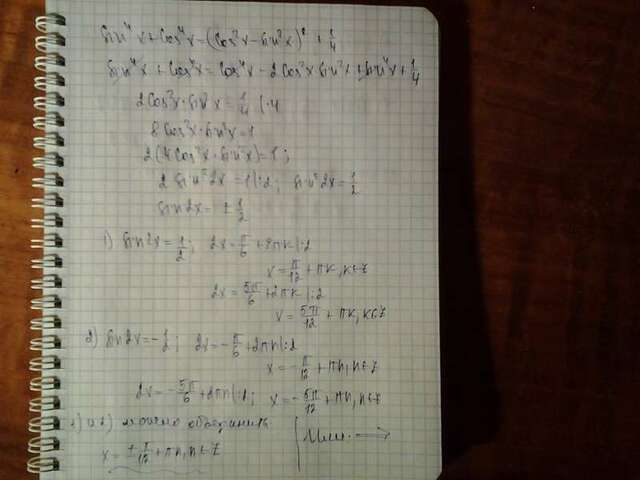 sin⁴x + cos⁴x = (cos²x - sin²x)² + 1/4
sin⁴x + cos⁴x = cos⁴x - 2cos²x sin²x + sin⁴x + 1/4
2cos²x · sin²x = 1/4 | · 4
8cos²x · sin²x = 1
2(4cos²x · sin²x) = 1;
2 sin²2x = 1 | : 2; sin²2x = 1/2
sin2x = ± 1/2
1) sin2x = 1/2; 2x = π/6 + 2πk | : 2
x = π/12 + πk, k∈Z
2x = 5π/6 + 2πk | : 2
x = 5π/12 + πk, k∈Z
2) sin2x = -1/2; 2x = -π/6 + 2πn | : 2
x = -π/12 + πn, n∈Z
2x = -5π/6 + 2πn | : 2; x = -5π/12 + πn, n∈Z
1) и 2) можно объединить
x = ± π/12 + πn, n∈Z